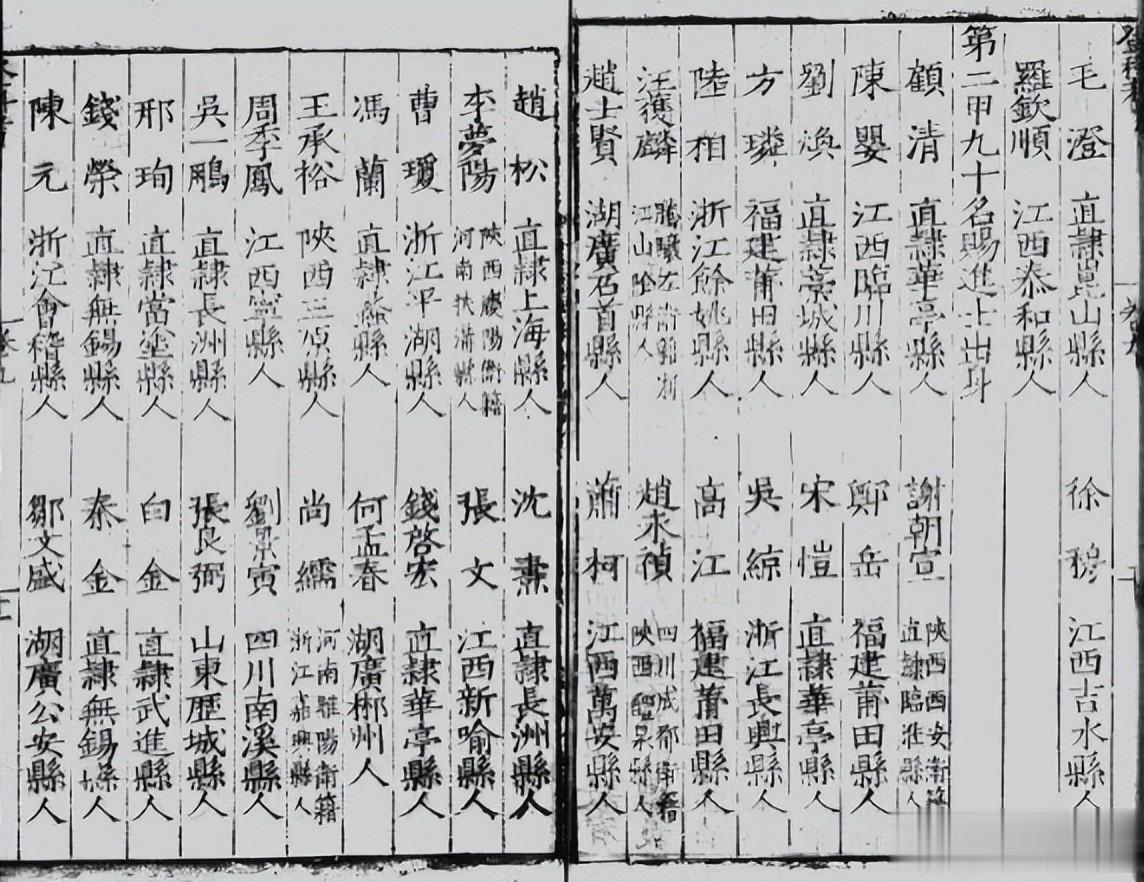 毛澄 直隸崑山縣人 徐穆 江西吉水縣人
羅欽順 江西泰和縣人
第二甲九十名賜進士出身
顧清 直隸華亭縣人 謝朝宣 陝西西安衛籍 直隸臨淮縣人
陳嬰 江西臨川縣人 鄭岳 福建莆田縣人
劉渙 直隸藁城縣人 宋愷 直隸華亭縣人
方璘 福建莆田縣人 吳綡 浙江長興縣人
陸相 浙江餘姚縣人 高江 福建莆田縣人
汪獲麟 騰驤左衛籍浙 江山陰縣人 趙永禎 四川成都衛籍 陝西醴泉縣人
趙士賢 湖廣石首縣人 蕭柯 江西萬安縣人
趙松 直隸上海縣人 沈燾 直隸長洲縣人
李夢陽 陝西慶陽衛籍 河南扶溝縣人 張文 江西新喻縣人
曹瓊 浙江平湖縣人 錢啓宏 直隸華亭縣人
馮蘭 直隸蠡縣人 何孟春 湖廣郴州人
王承裕 陝西三原縣人 尚繻 河南睢陽衛籍 浙江嘉興縣人
周季鳳 江西寧縣人 劉景寅 四川南溪縣人
吳一鵬 直隸長洲縣人 張良弼 山東歷城縣人
邢珣 直隸當塗縣人 白金 直隸武進縣人
錢榮 直隸無錫縣人 秦金 直隸無錫縣人
陳元 浙江會稽縣人 鄒文盛 湖廣公安縣人